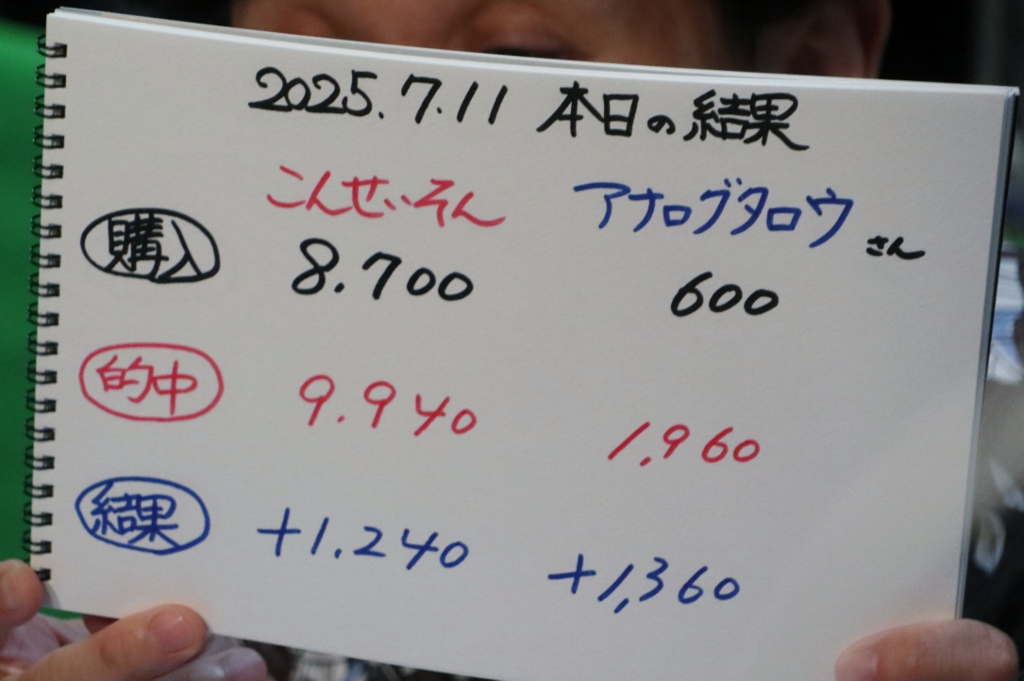 2025.7.11 本日の結果
こんせいそん アナログタロウさん
購入 8.700 600
的中 9.940 1,960
結果 +1.240 +1,360